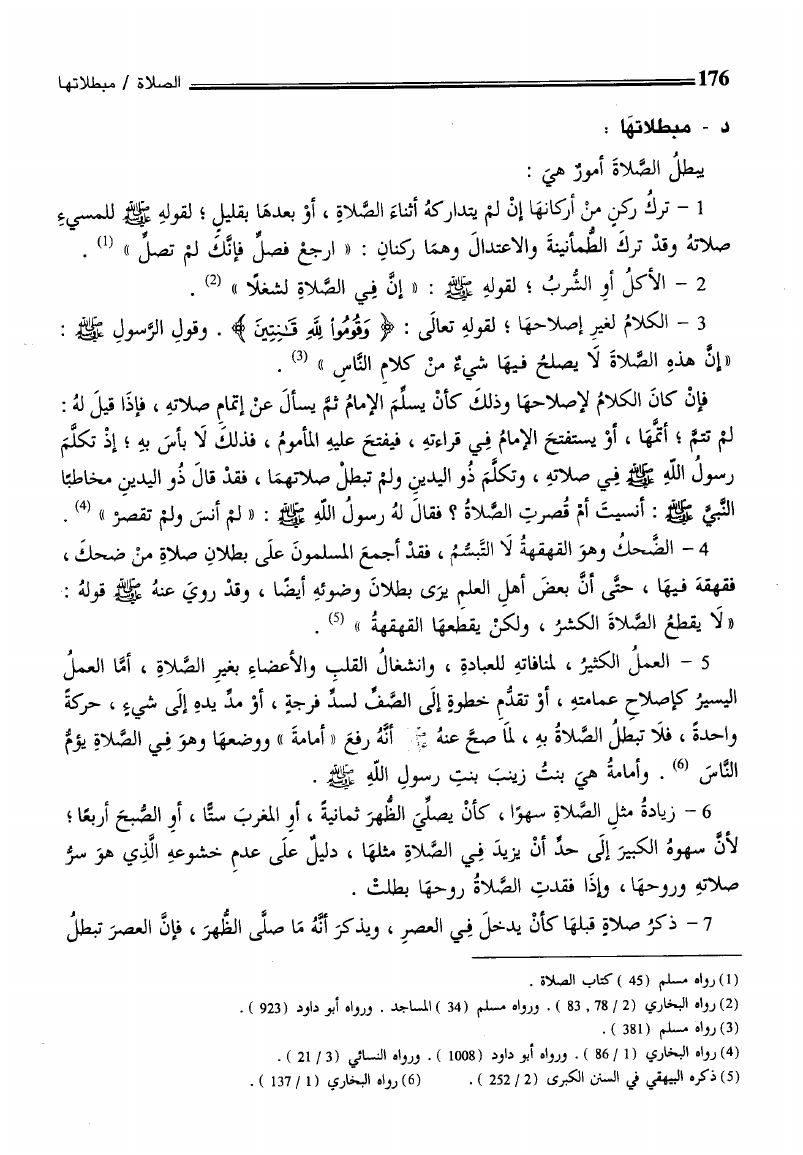 176 الصلاة / مبطلاتها
د - مبطلاتهَا :
يبطلُ الصَّلاةَ أمورٌ هيَ :
1 – تركُ ركنٍ منْ أركانهَا إنْ لمْ يتداركهُ أثناءَ الصَّلاةِ ، أوْ بعدهَا بقليلٍ ؛ لقولهِ ﷺ للمسيءِ
صلاتهُ وقدْ تركَ الطُّمأنينةَ والاعتدالَ وهمَا ركنانِ : « ارجعْ فصلِّ فإنَّكَ لمْ تصلِّ » (1) .
2 – الأكلُ أوِ الشُّربُ ؛ لقولهِ ﷺ : « إنَّ فِي الصَّلاةِ لشغلًا » (2) .
3 – الكلامُ لغيرِ إصلاحهَا ؛ لقولهِ تعالَى : ﴿ وَقُومُوا۟ لِلَّهِ قَـٰنِتِينَ ﴾ . وقولِ الرَّسولِ ﷺ :
« إنَّ هذهِ الصَّلاةَ لَا يصلحُ فيهَا شيءٌ منْ كلامِ النَّاسِ » (3) .
فإنْ كانَ الكلامُ لإصلاحهَا وذلكَ كأنْ يسلِّمَ الإمامُ ثمَّ يسألَ عنْ إتمامِ صلاتهِ ، فإذَا قيلَ لهُ :
لمْ تتمَّ ؛ أتمَّهَا ، أوْ يستفتحَ الإمامُ فِي قراءتهِ ، فيفتحَ عليهِ المأمومُ ، فذلكَ لَا بأسَ بهِ ؛ إذْ تكلَّمَ
رسولُ اللَّهِ ﷺ فِي صلاتهِ ، وتكلَّمَ ذُو اليدينِ ولمْ تبطلْ صلاتهمَا ، فقدْ قالَ ذُو اليدينِ مخاطبًا
النَّبيَّ ﷺ : أنسيتَ أمْ قُصرتِ الصَّلاةُ ؟ فقالَ لهُ رسولُ اللَّهِ ﷺ : « لمْ أنسَ ولمْ تقصرْ » (4) .
4 – الضَّحكُ وهوَ القهقهةُ لَا التَّبسُّمُ ، فقدْ أجمعَ المسلمونَ علَى بطلانِ صلاةِ منْ ضحكَ ،
فقهقهَ فيهَا ، حتَّى أنَّ بعضَ أهلِ العلمِ يرَى بطلانَ وضوئهِ أيضًا ، وقدْ رويَ عنهُ ﷺ قولهُ :
« لَا يقطعُ الصَّلاةَ الكشرُ ، ولكنْ يقطعهَا القهقهةُ » (5) .
5 – العملُ الكثيرُ ، لمنافاتهِ للعبادةِ ، وانشغالُ القلبِ والأعضاءِ بغيرِ الصَّلاةِ ، أمَّا العملُ
اليسيرُ كإصلاحِ عمامتهِ ، أوْ تقدُّمِ خطوةٍ إلَى الصَّفِّ لسدِّ فرجةٍ ، أوْ مدِّ يدهِ إلَى شيءٍ ، حركةً
واحدةً ، فلَا تبطلُ الصَّلاةُ بهِ ، لمَا صحَّ عنهُ ﷺ أنَّهُ رفعَ « أمامةَ » ووضعهَا وهوَ فِي الصَّلاةِ يؤمُّ
النَّاسَ (6) . وأمامةُ هيَ بنتُ زينبَ بنتِ رسولِ اللَّهِ ﷺ .
6 – زيادةُ مثلِ الصَّلاةِ سهوًا ، كأنْ يصلِّيَ الظُّهرَ ثمانيةً ، أوِ المغربَ ستًّا ، أوِ الصُّبحَ أربعًا ؛
لأنَّ سهوهُ الكبيرَ إلَى حدِّ أنْ يزيدَ فِي الصَّلاةِ مثلهَا ، دليلٌ علَى عدمِ خشوعهِ الَّذِي هوَ سرُّ
صلاتهِ وروحهَا ، وإذَا فقدتِ الصَّلاةُ روحهَا بطلتْ .
7 – ذكرُ صلاةٍ قبلهَا كأنْ يدخلَ فِي العصرِ ، ويذكرَ أنَّهُ مَا صلَّى الظُّهرَ ، فإنَّ العصرَ تبطلُ
(1) رواه مسلم ( 45 ) كتاب الصلاة .
(2) رواه البخاري ( 2 / 78 , 83 ) . ورواه مسلم ( 34 ) المساجد . ورواه أبو داود ( 923 ) .
(3) رواه مسلم ( 381 ) .
(4) رواه البخاري ( 1 / 86 ) . ورواه أبو داود ( 1008 ) . ورواه النسائي ( 3 / 21 ) .
(5) ذكره البيهقي في السنن الكبرى ( 2 / 252 ) . (6) رواه البخاري ( 1 / 137 ) .